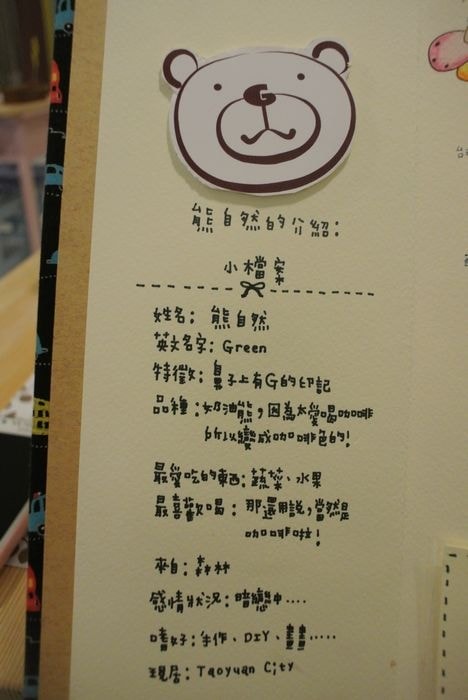 熊自然的介紹:
小檔案
姓名: 熊自然
英文名字: Green
特徵: 鼻子上有G的印記
品種: 奶油熊,因為太愛喝咖啡
所以變成咖啡色的!
最愛吃的東西: 蔬菜、水果
最喜歡喝: 那還用說,當然是
咖啡啦!
來自: 森林
感情狀況: 暗戀中....
嗜好: 手作、DIY、畫畫.....
現居: Taoyuan City